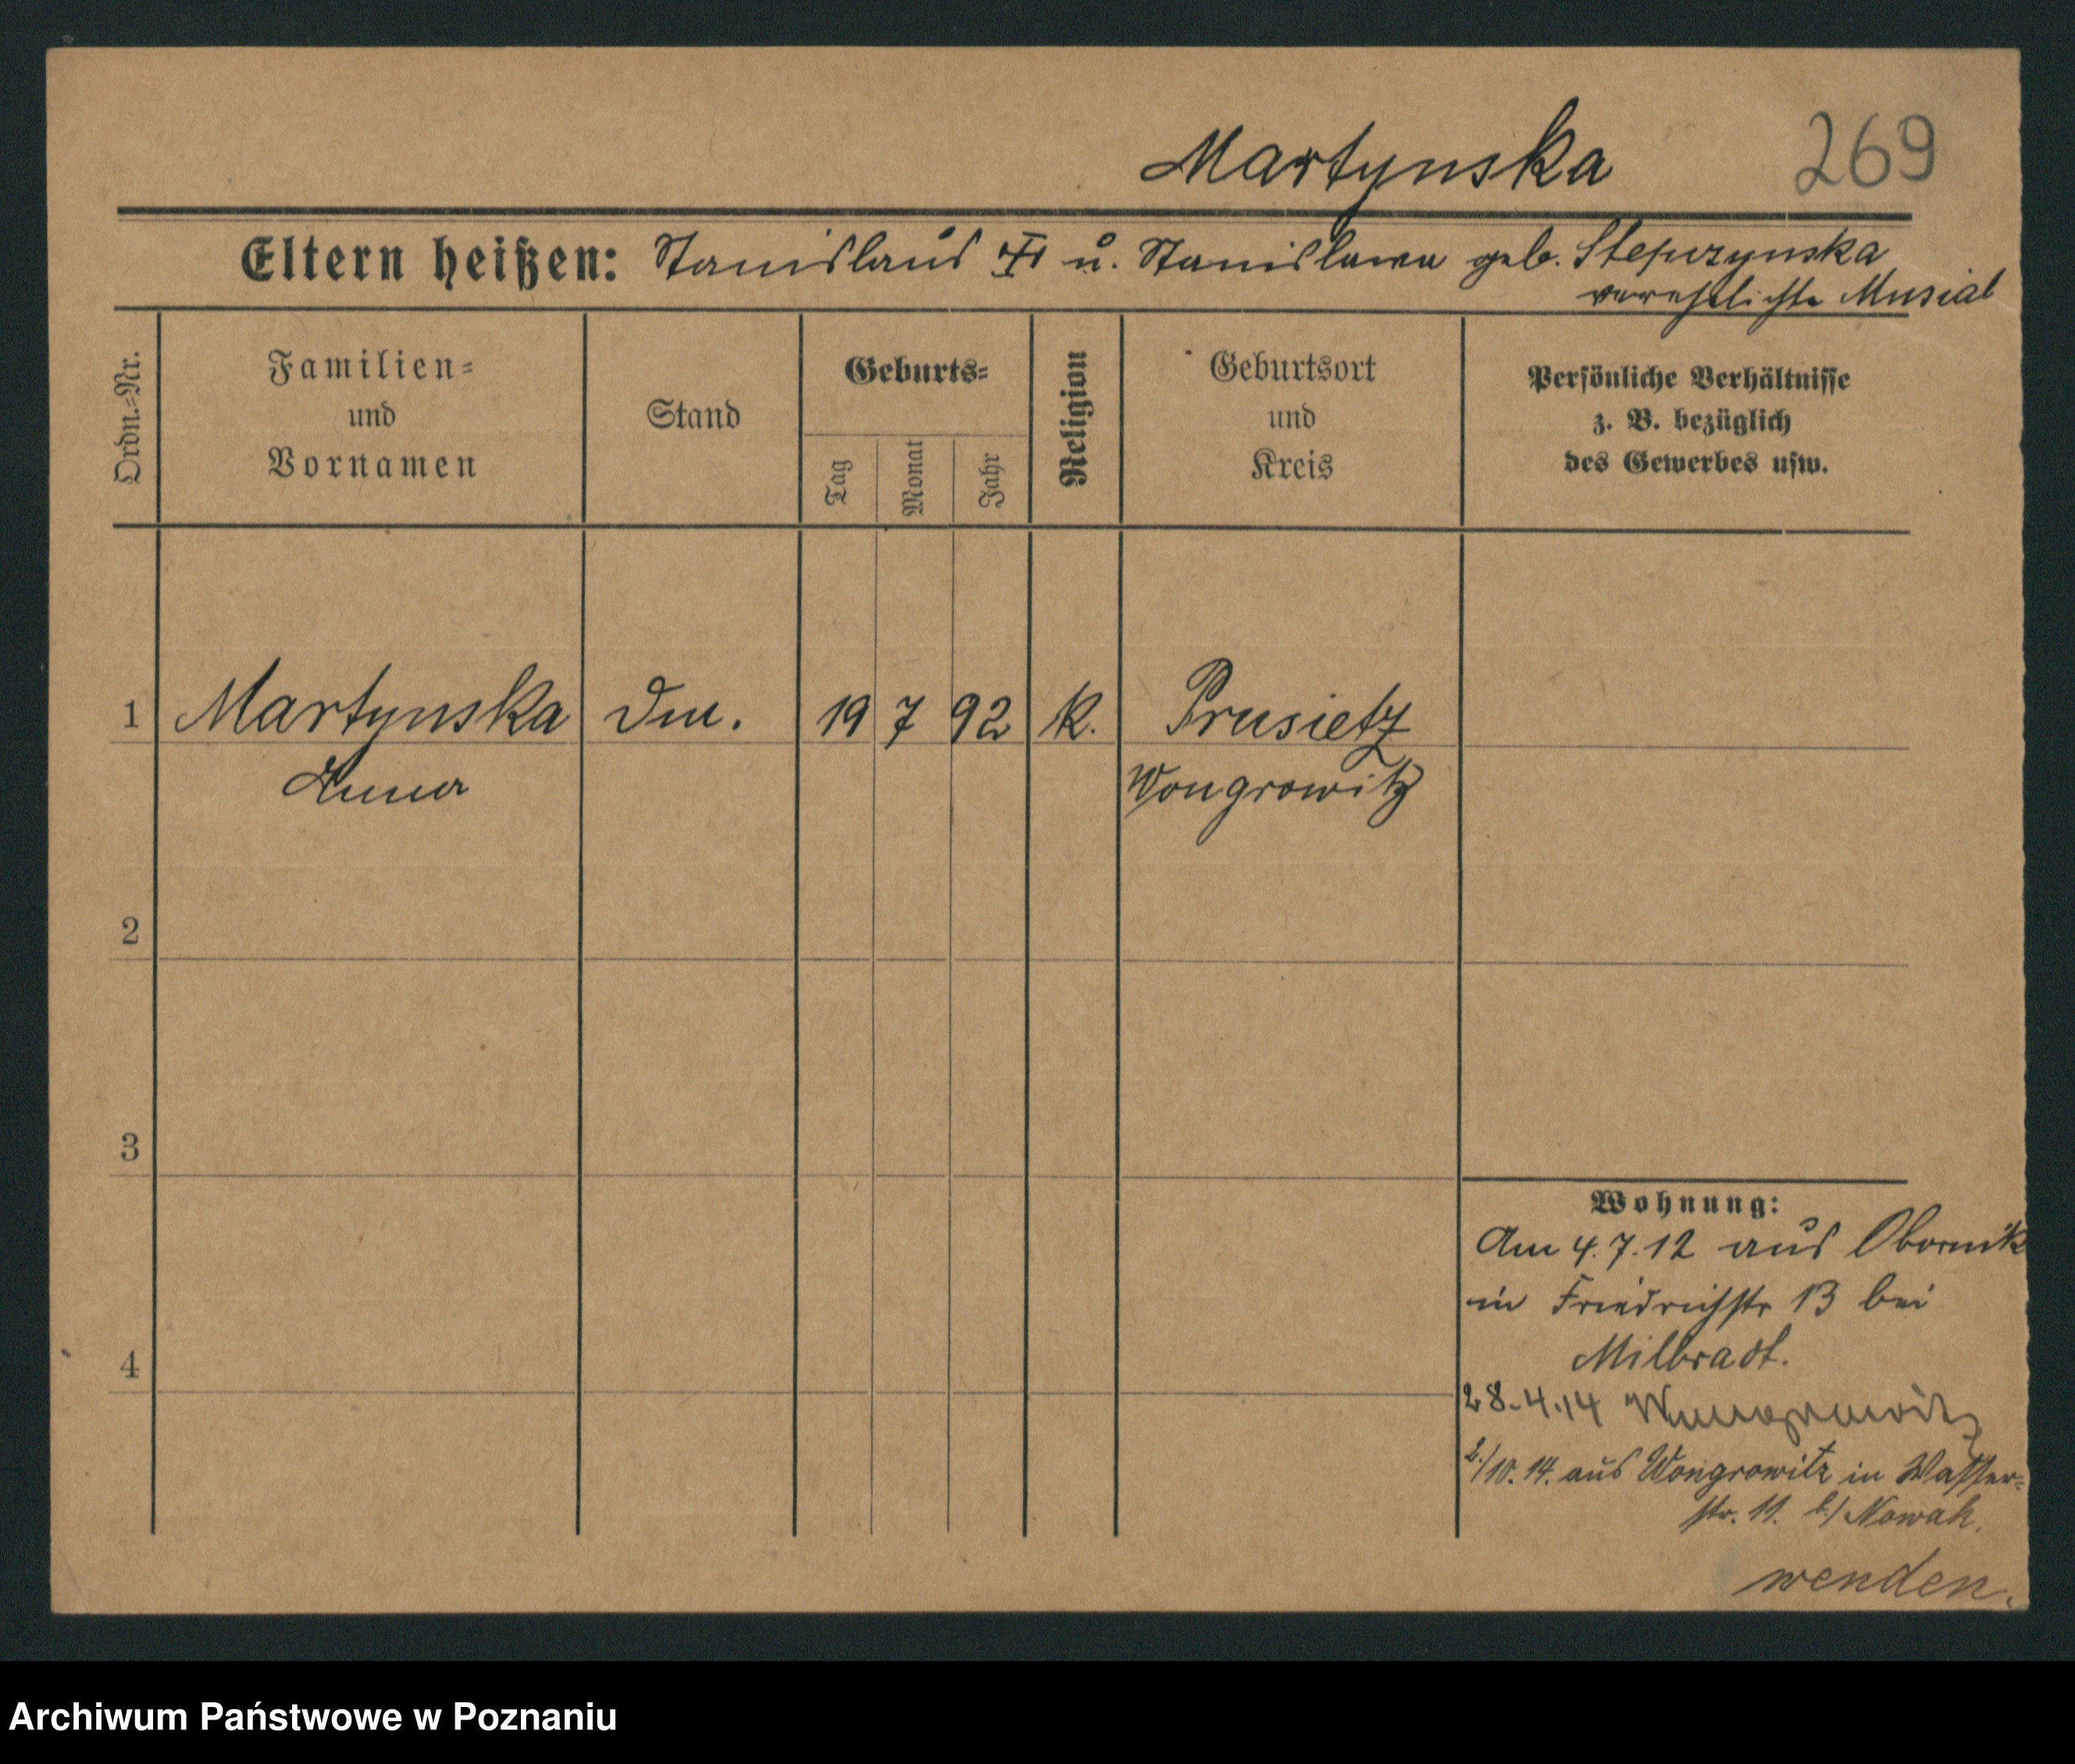 Martynska 269
Eltern heißen: Stanislaus † u. Stanislawa geb. Stepczynska
verehelichte Musial
Ordn.=Nr.
Familien=
und
Vornamen
Stand
Geburts=
Tag
Monat
Jahr
Religion
Geburtsort
und
Kreis
Persönliche Verhältnisse
z. B. bezüglich
des Gewerbes usw.
1 Martynska Dm. 19 7 92 k. Prusietz
Anna Wongrowitz
2
3
4
Wohnung:
Am 4.7.12 aus Obornik
in Friedrichstr 13 bei
Milbradt.
28.4.14 Wongrowitz
2./10.14. aus Wongrowitz in Wasser=
str. 11. b/ Nowak.
wenden.
Archiwum Państwowe w Poznaniu